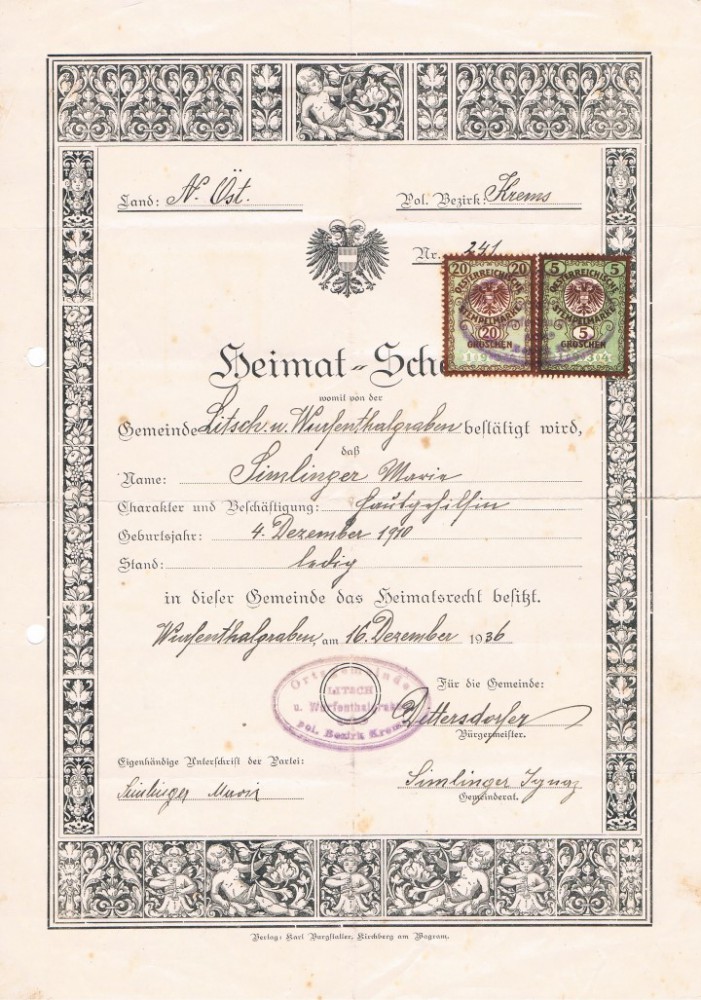 Land: N. Öst.
Pol. Bezirk: Krems
Nr. 241
20 20
OESTERREICHISCHE
STEMPELMARKE
20
GROSCHEN
5 5
OESTERREICHISCHE
STEMPELMARKE
5
GROSCHEN
Heimat-Sche
womit von der
Gemeinde Litsch. u. Wurfenthalgraben bestätigt wird,
daß
Name: Simlinger Marie
Charakter und Beschäftigung: Hausgehilfin
Geburtsjahr: 4. Dezember 1910
Stand: ledig
in dieser Gemeinde das Heimatsrecht besitzt.
Wurfenthalgraben, am 16. Dezember 1936
Ortsgemeinde
LITSCH
u. Wurfenthalgraben
pol. Bezirk Krems
Für die Gemeinde:
Dittersdorfer
Bürgermeister.
Eigenhändige Unterschrift der Partei:
Simlinger Marie
Simlinger Ignaz
Gemeinderat.
Verlag: Karl Bergstaller, Kirchberg am Wagram.